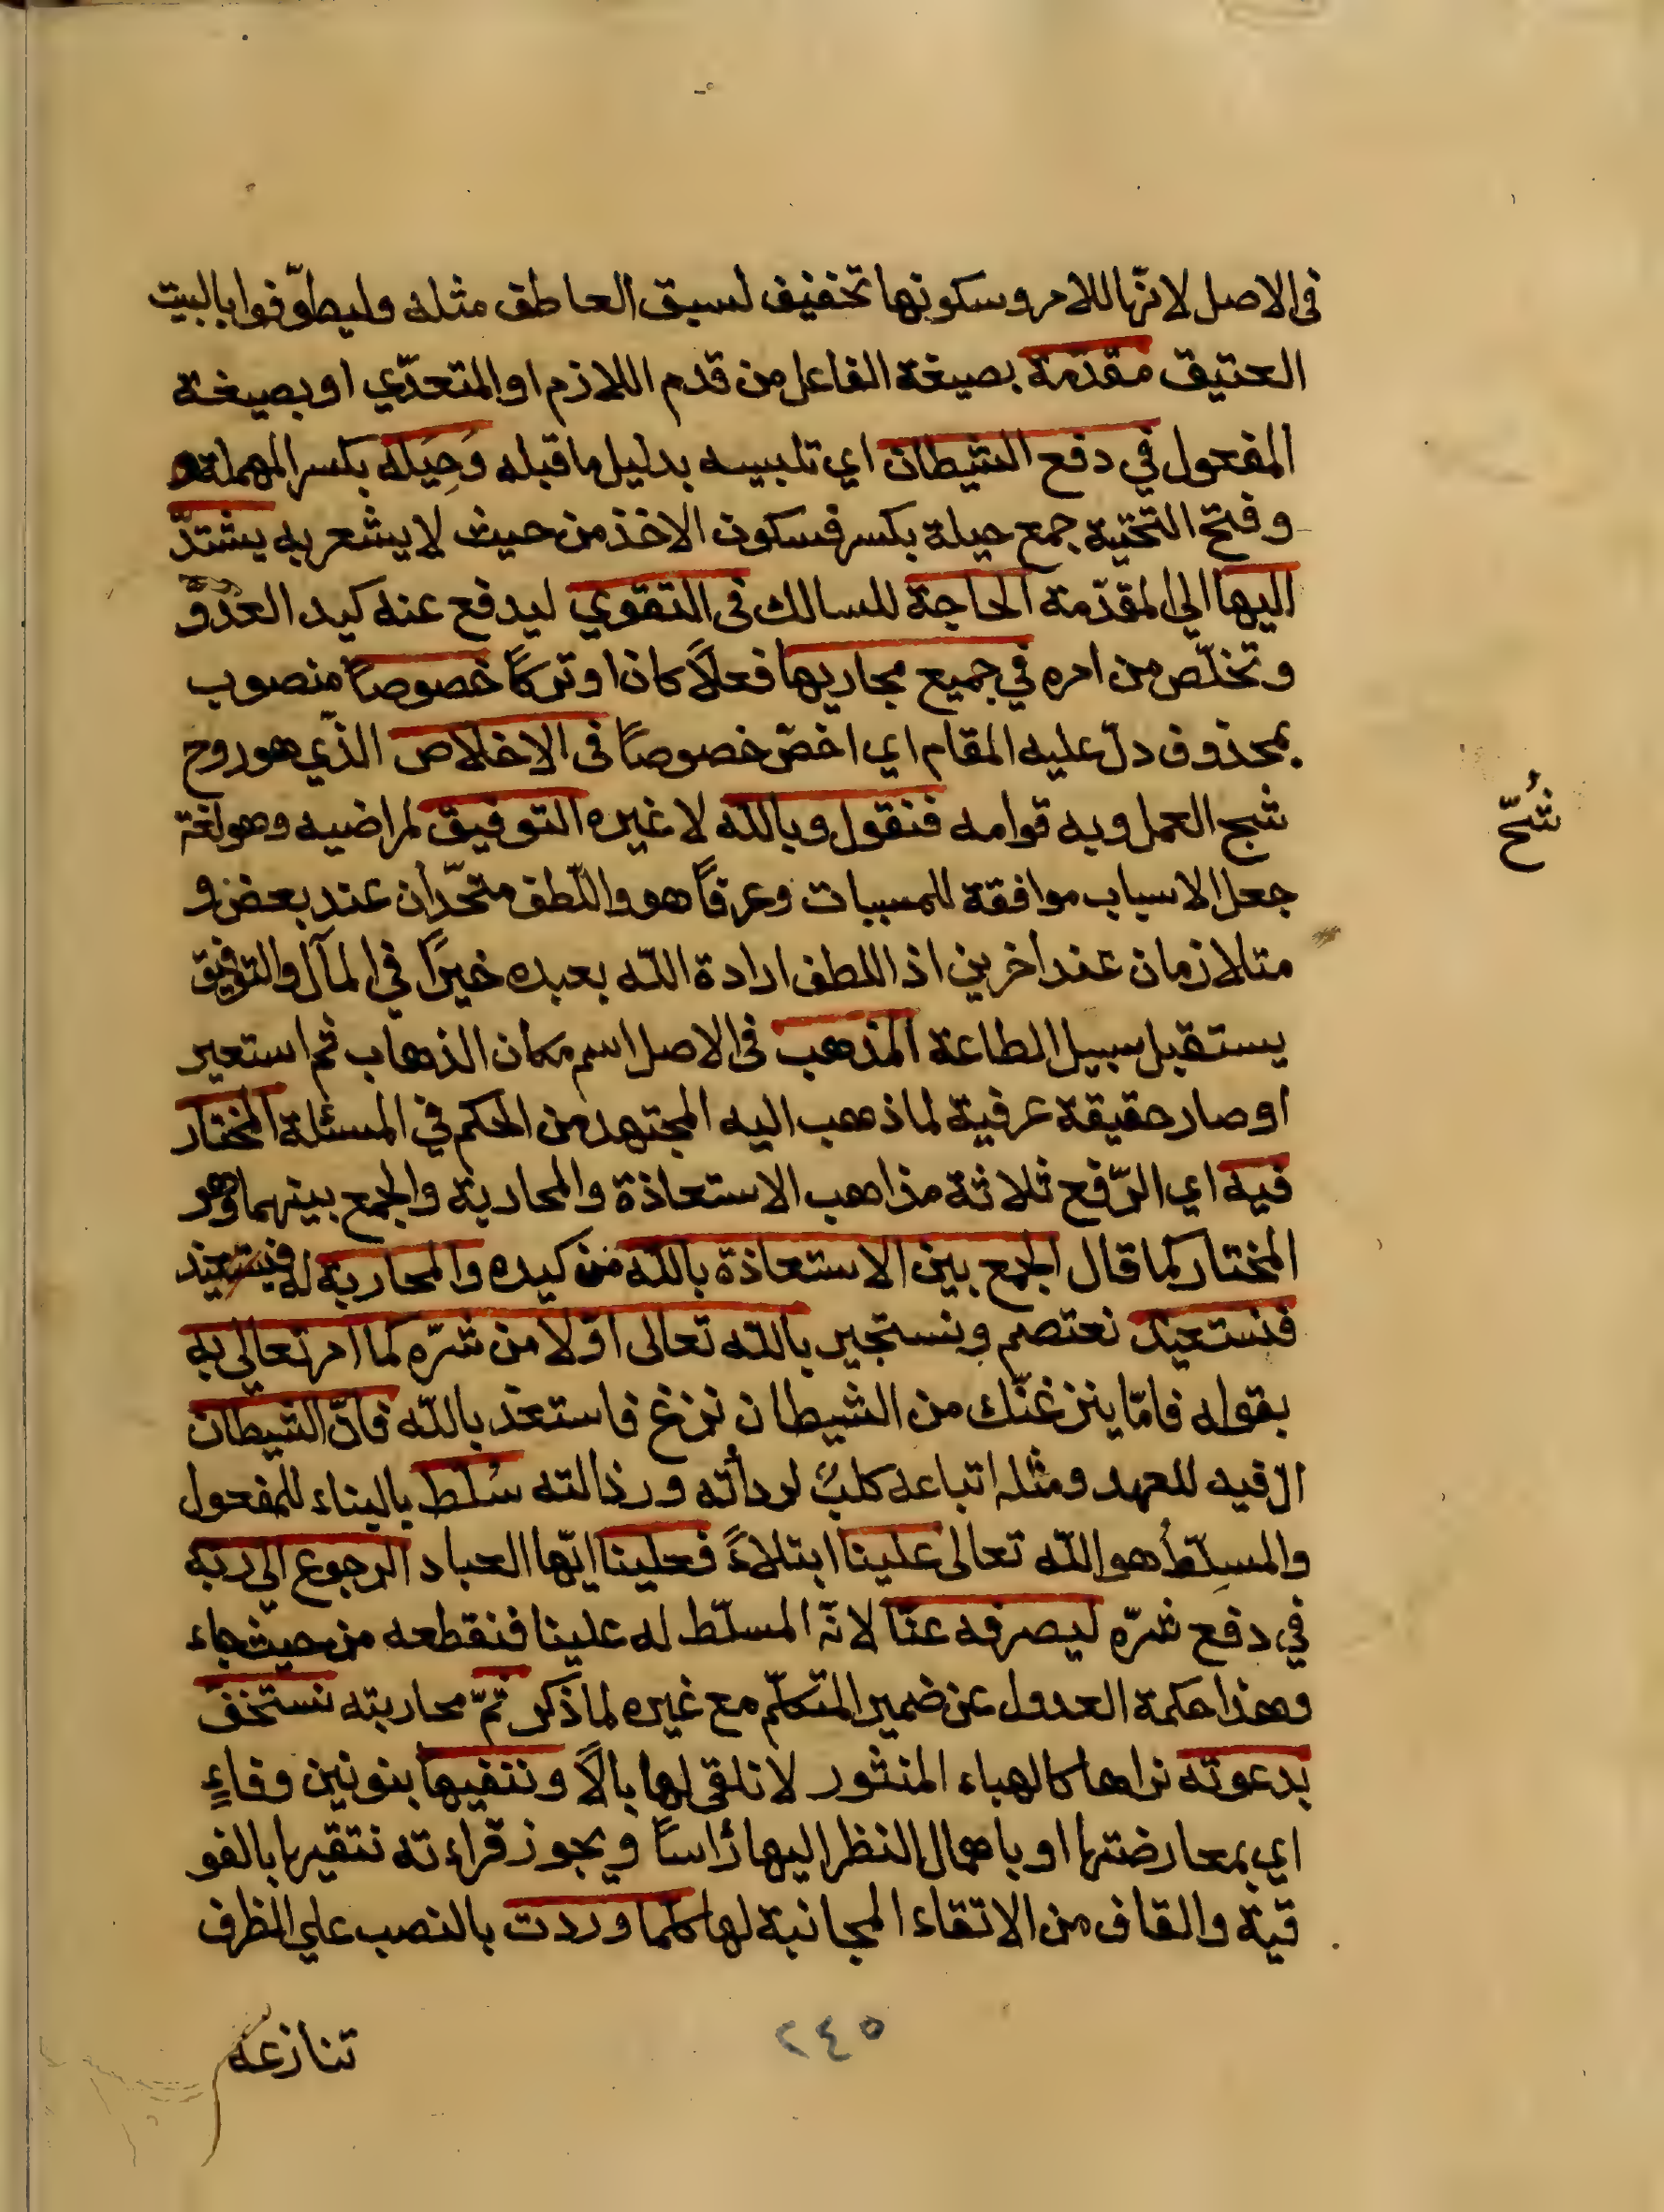 فى الاصل لانّها للامر وسكونها تخفيف لسبق العاطف مثله وليطوّفوا بالبيت
العتيق مقدّمة بصيغة الفاعل من قدم اللازم او المتعدّي او بصيغة
المفعول في دفع الشيطان اي تلبيسه بدليل ما قبله وَحِيَله بكسر المهملة
وفتح التحتية جمع حيلة بكسر فسكون الاخذ من حيث لا يشعر به يشتدّ
اليها الى المقدّمة الحاجة للسالك فى التقوي ليدفع عنه كيد العدوّ
وتخلّص من امره في جميع مجاريها فعلاً كان او تركاً خصوصاً منصوب
بمحذوف دلّ عليه المقام اي اخصّ خصوصاً فى الاخلاص الذّي هو روح
شبح العمل وبه قوامه فنقول وبالله لا غيره التوفيق لمراضيه وهو لغة
شُبّح
جعل الاسباب موافقة للمسببات وعرفاً هو واللّطف متحدّان عند بعض و
متلازمان عند اخرين اذ اللطف ارادة الله بعبده خيرًا في المآل والتوفيق
يستقبل سبيل الطاعة المذهب فى الاصل اسم مكان الذهاب ثم استعير
او صار حقيقة عرفية لما ذهب اليه المجتهد من الحكم في المسئلة المختار
فيه اي الدّفع ثلاثة مذاهب الاستعاذة والمحاربة والجمع بينهما وهو
المختار كما قال الجمع بين الاستعاذة بالله من كيده والمحاربة له
فنستعيذ نعتصم ونستجير بالله تعالى اوّلا من شرّه كما امر تعالي به
بقوله فامّا ينزغنّك من الشيطان نزغ فاستعذ بالله فانّ الشيطان
ال فيه للعهد ومثله اتباعه كلبٌ لردأته ورذالته سُلّط بالبناء للمفعول
والمسلِّطُ هو الله تعالى علينا ابتلاءً فعلينا ايّها العباد الرجوع الي ربه
في دفع شرّه ليصرفه عنّا لانّه المسلّط له علينا فنقطعه من حيث جاء
وهذا حكمة العدول عن ضمير المتكلّم مع غيره لما ذكر ثمّ محاربته نستخفّ
بدعوته نراها كالهباء المنثور لا نلقى لها بالاً وننفيها بنونين وفاءٍ
اي بمعارضتها او باهمال النظر اليها رأساً ويجوز قراءته نتقيها بالفو
قية والقاف من الاتقاء المجانبة لها كلما وردت بالنصب علي الظرف
تنازعه
٢٤٥